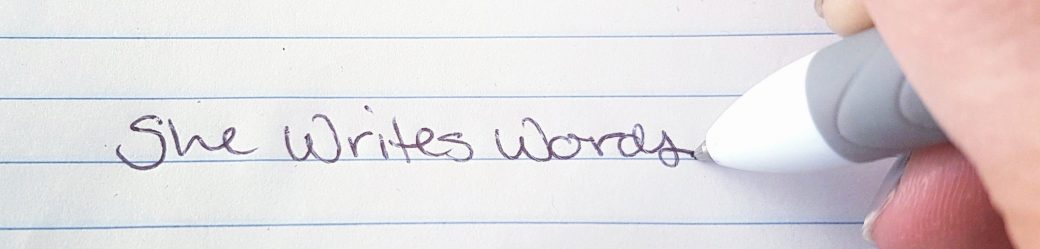 She Writes Words